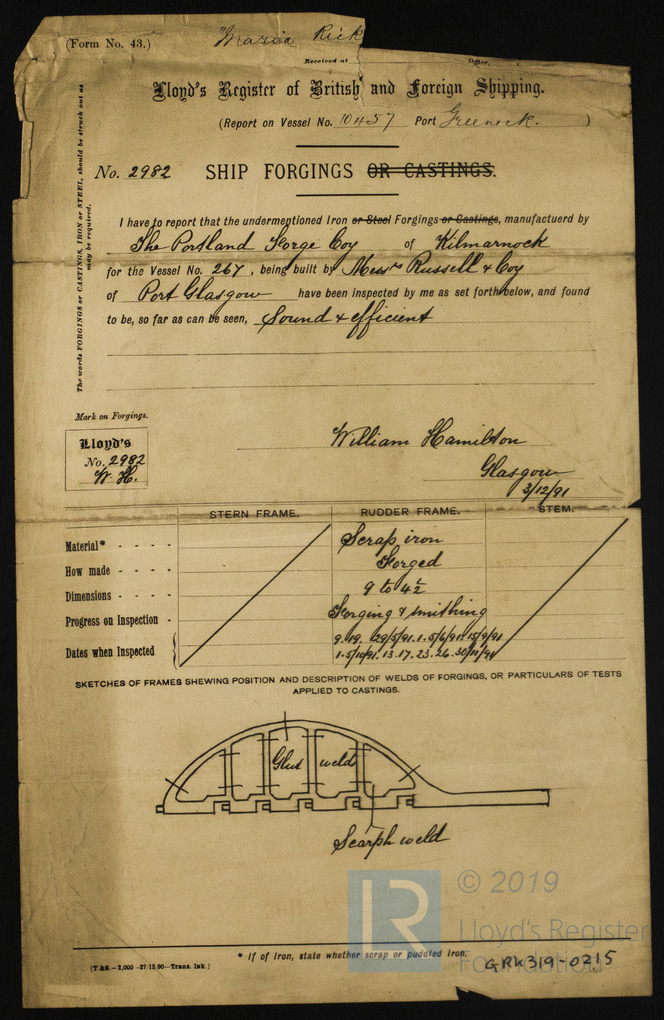 (Form No. 43.)
"Maria Rick
Received at Office,
Lloyd's Register of British and Foreign Shipping.
(Report on Vessel No. 10457 Port Greenock. )
No. 2982 SHIP FORGINGS OR CASTINGS.
The words FORGINGS or CASTINGS, IRON or STEEL, should be struck out as
may be required.
I have to report that the undermentioned Iron or Steel Forgings or Castings, manufactuerd by
The Portland Forge Coy of Kilmarnock
for the Vessel No. 267, being built by Messrs Russell & Coy
of Port Glasgow have been inspected by me as set forth below, and found
to be, so far as can be seen, Sound & efficient
Mark on Forgings.
Lloyd's
No. 2982
W. H.
William Hamilton
Glasgow
3/12/91
STERN FRAME. RUDDER FRAME. STEM.
Material* - - - - Scrap iron
How made - - - - Forged
Dimensions - - - - 9 to 4½
Progress on Inspection - Forging & smithing
Dates when Inspected
9. 19. 29/5/91. 1. 5/6/91. 15/9/91
1. 5/10/91. 13. 17. 23. 26. 30/11/91
SKETCHES OF FRAMES SHEWING POSITION AND DESCRIPTION OF WELDS OF FORGINGS, OR PARTICULARS OF TESTS
APPLIED TO CASTINGS.
Glut weld
Scarph weld
© 2019
LR
Lloyd's Register
Foundation
* If of iron, state whether scrap or puddled iron.
[T.&S.—2,000—27/12.90—Trans. Ink.]
GRK319-0215